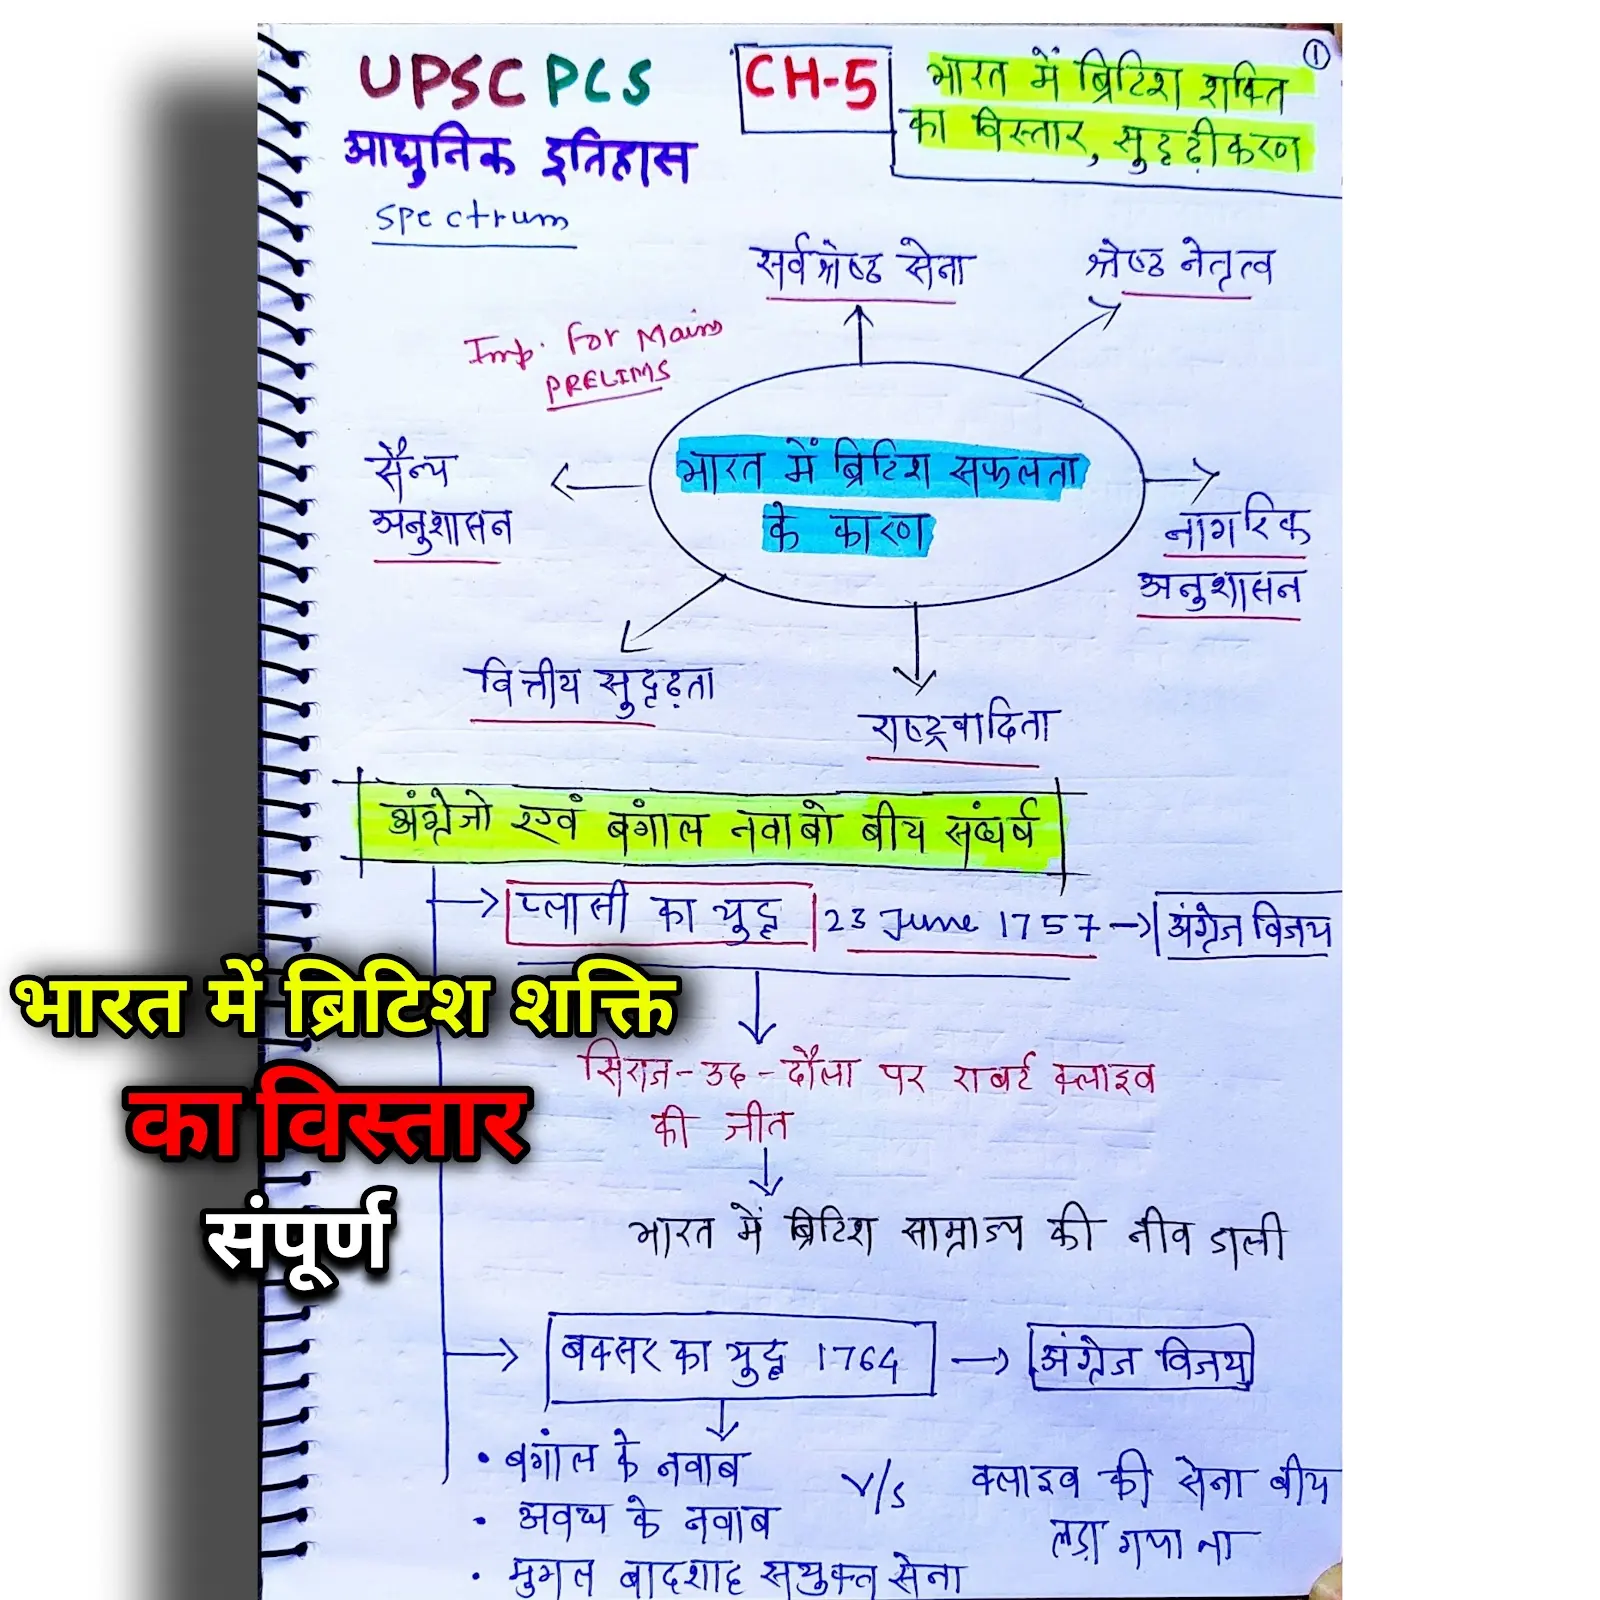 ①
UPSC PCS
आधुनिक इतिहास
Spectrum
CH-5
भारत में ब्रिटिश शक्ति
का विस्तार, सुदृढ़ीकरण
सर्वश्रेष्ठ सेना
श्रेष्ठ नेतृत्व
Imp. For Mains
PRELIMS
सैन्य
अनुशासन
भारत में ब्रिटिश सफलता
के कारण
नागरिक
अनुशासन
वित्तीय सुदृढ़ता
राष्ट्रवादिता
अंग्रेजो एवं बंगाल नवाबो बीच संघर्ष
प्लासी का युद्ध 23 June 1757 → अंग्रेज विजय
सिराज-उद-दौला पर राबर्ट क्लाइव
की जीत
भारत में ब्रिटिश साम्राज्य की नीव डाली
बक्सर का युद्ध 1764 → अंग्रेज विजय
• बगांल के नवाब
• अवध के नवाब
• मुगल बादशाह सयुक्त सेना
V/s
क्लाइव की सेना बीच
लड़ा गया था
भारत में ब्रिटिश शक्ति
का विस्तार
संपूर्ण